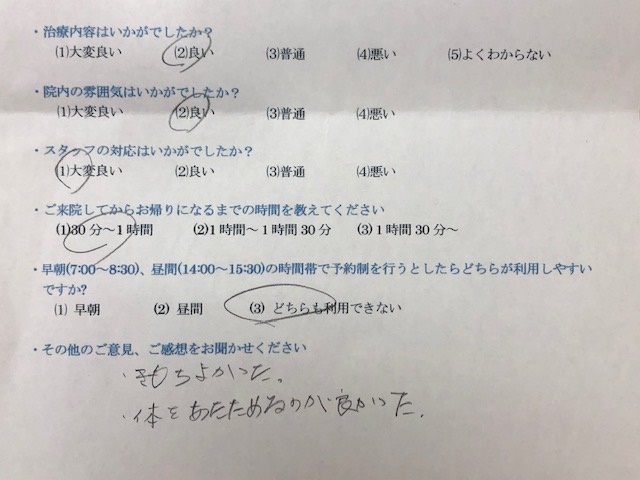 ・治療内容はいかがでしたか？
(1)大変良い (2)良い (3)普通 (4)悪い (5)よくわからない
・院内の雰囲気はいかがでしたか？
(1)大変良い (2)良い (3)普通 (4)悪い
・スタッフの対応はいかがでしたか？
(1)大変良い (2)良い (3)普通 (4)悪い
・ご来院してからお帰りになるまでの時間を教えてください
(1)30分～1時間 (2)1時間～1時間30分 (3)1時間30分～
・早朝(7:00～8:30)、昼間(14:00～15:30)の時間帯で予約制を行うとしたらどちらが利用しやすい
ですか?
(1) 早朝 (2) 昼間 (3) どちらも利用できない
・その他のご意見、ご感想をお聞かせください
・きもちよかった。
・体をあたためるのが良かった.